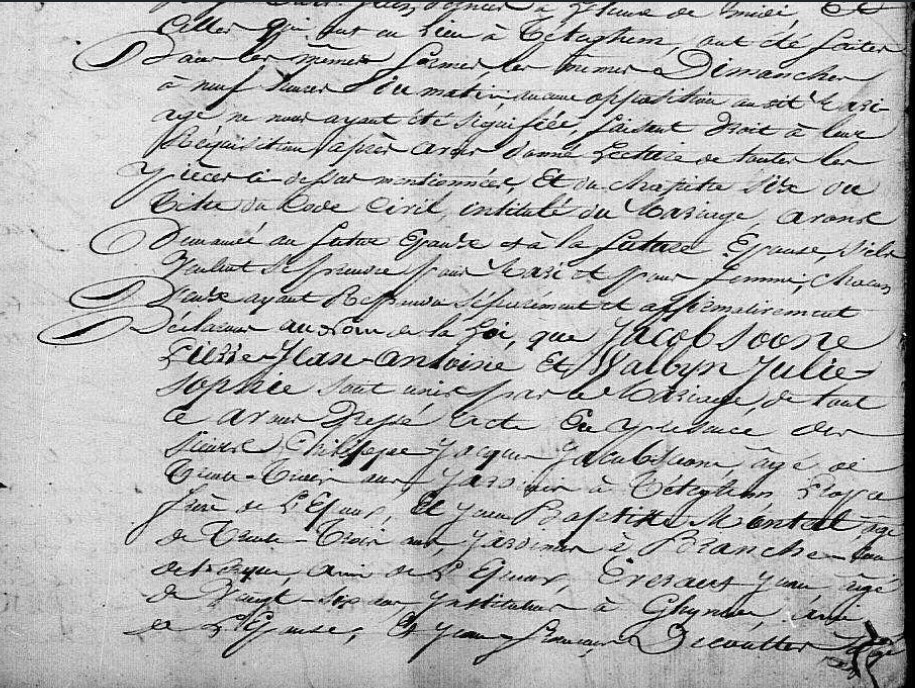 janvier à L'heure de midi, Et
Celles qui ont eu Lieu à Téteghem, ont été faites
Dans les mêmes formes, les mêmes Dimanches
à neuf heures Du matin, aucune opposition audit Mari-
age ne nous ayant été signifiée, faisant Droit à leur
Réquisition, après avoir donné Lecture de toutes les
pièces ci-dessus mentionnées, Et du chapitre Six du
Titre du Code Civil, intitulé du Mariage, avons
Demandé au futur Epoux et à la future Epouse, s'ils
Veulent se prendre pour Mari et pour femme, chacun
D'eux ayant Répondu séparément et affirmativement
Déclarons au nom de la Loi, que Jacobsoone
Pierre-Jean-Antoine Et Walbyn Julie-
Sophie sont unis par le Mariage, de tout
ce avons Dressé acte En présence des
sieurs Philippe-Jacques Jacobsoone, âgé de
Trente-Trois ans Jardinier à Téteghem
frère de L'Epoux, Et Jean Baptiste Montal âgé
de Trente-Trois ans, Jardinier à Branche-
ami de L'Epoux, Jean âgé
de Vingt-six ans Instituteur à Ghyvelde, ami
de L'Epouse, Et Jean francois Decoutter âgé